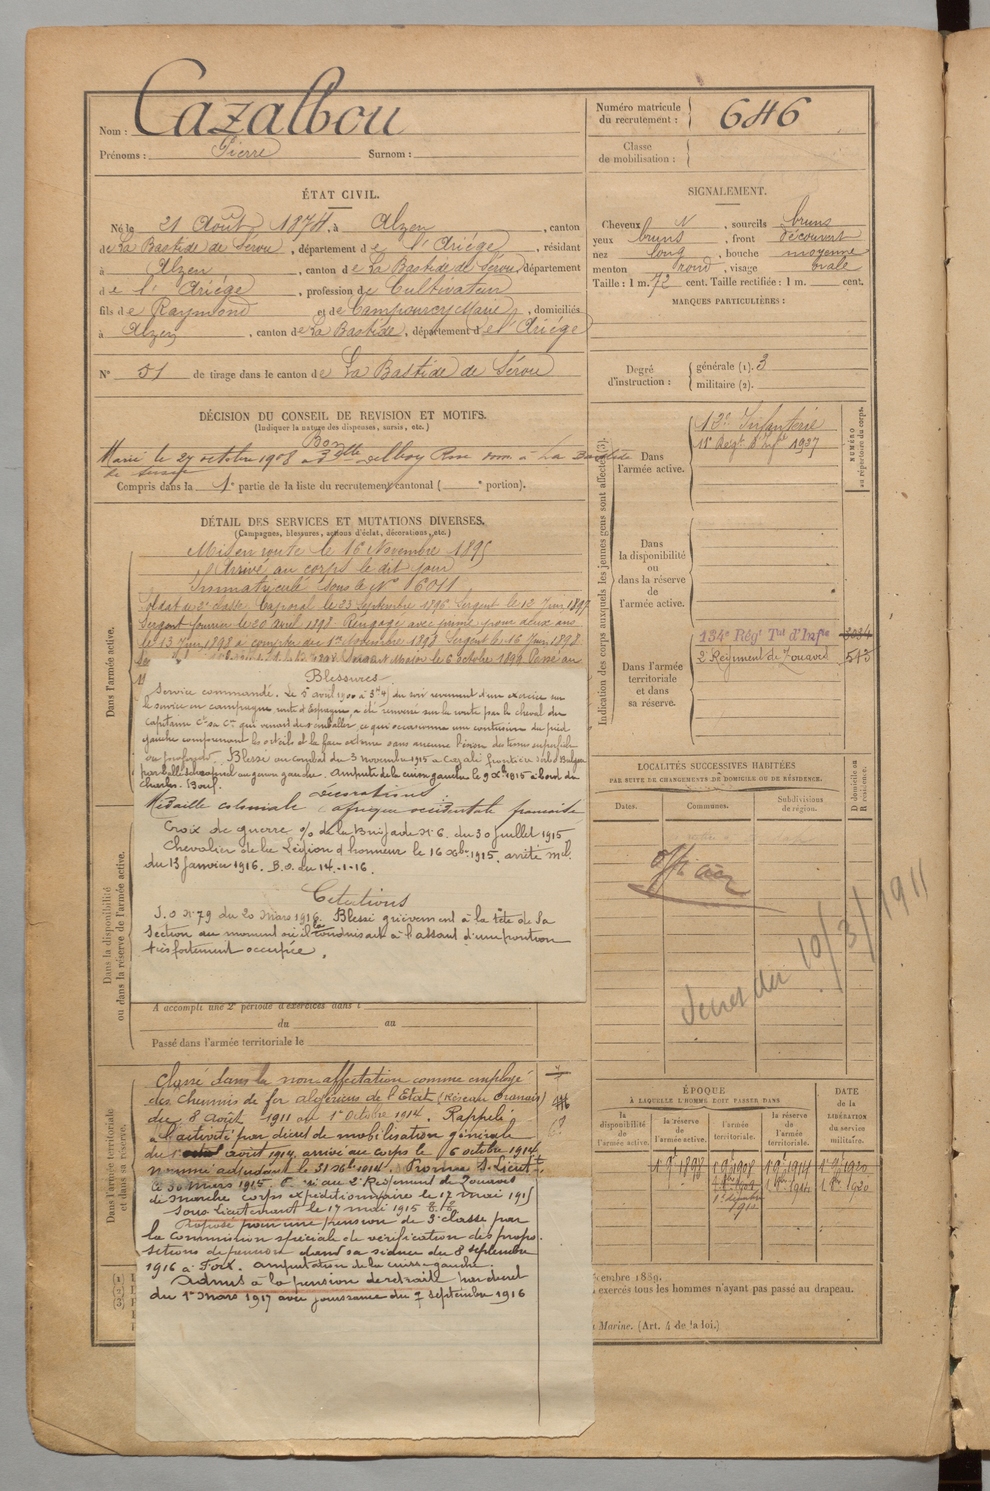 Nom : Cazalbou
Prénoms : Pierre Surnom :
Numéro matricule
du recrutement : 646
Classe
de mobilisation :
ÉTAT CIVIL.
Né le 21 Août 1874, à Alzen, canton
de La Bastide de Sérou, département de l'Ariège, résidant
à Alzen, canton de La Bastide de Sérou, département
de l'Ariège, profession de Cultivateur
fils de Raymond et de Campourcy Marie, domiciliés
à Alzen, canton de La Bastide, département de l'Ariège
N° 51 de tirage dans le canton de La Bastide de Sérou
DÉCISION DU CONSEIL DE REVISION ET MOTIFS.
(Indiquer la nature des dispenses, sursis, etc.)
Bon
Marié le 27 octobre 1908 à Rose dom. à La Bastide
de Serou
Compris dans la 1e partie de la liste du recrutement cantonal ( e portion).
DÉTAIL DES SERVICES ET MUTATIONS DIVERSES.
(Campagnes, blessures, actions d'éclat, décorations, etc.)
Dans l'armée active.
Mis en route le 16 Novembre 1895
Arrivé au corps le dit jour
Immatriculé sous le N° 6011
Soldat de 2e classe Caporal le 23 Septembre 1896 Sergent le 12 Juin 1897
Sergent fourrier le 20 avril 1898 Rengagé avec prime pour deux ans
le 13 Juin 1898 à compter du 1er Novembre 1898 Sergent le 16 Juin 1898
Sergent Major le 6 octobre 1899 Passé au
Blessures
Service commandé. Le 5 avril 1900 à du soir revenant d'un exercice sur
le service en campagne route d'Espagne, a été renversé sur la route par le cheval du
capitaine Ct sa Cie qui venait de s'emballer, ce qui occasionna une contusion du pied
gauche comprenant les orteils et la face externe sans aucune lésion des tissus superficiels
ou profonds. Blessé au combat du 3 novembre 1915 à frontière Serbo Bulgare
par balle schrapnel au genou gauche. Amputé de la cuisse gauche le 9 Xbre 1915 à bord du
Charles-Roux.
Décorations
Médaille coloniale "afrique occidentale française"
Croix de guerre o/o de la Brigade N° 6. du 30 juillet 1915
Chevalier de la Légion d'honneur le 16 Xbre 1915. arrêté mel.
du 13 Janvier 1916. B.O. du 14-1-16.
Citations
J.O N° 79 du 20 Mars 1916. Blessé grièvement à la tête de la
section au moment où il la conduisait à l'assaut d'une position
très fortement occupée.
Dans la disponibilité
ou dans la réserve de l'armée active.
A accompli une 2e période d'exercices dans l
du au
Passé dans l'armée territoriale le
Dans l'armée territoriale
et dans sa réserve.
Classé dans la non affectation comme employé
des chemins de fer algériens de l'Etat (Réseau Oranais)
du 8 Août 1911 au 1er Octobre 1914. Rappelé
à l'activité par décret de mobilisation générale
du 1er août 1914, arrivé au corps le 6 octobre 1914
nommé adjudant le 31 Xbre 1914. Promu S. Lieutt
le 30 mars 1915. au 2e Régiment de Zouaves
de marche corps expéditionnaire le 17 mai 1915
Sous Lieutenant le 17 mai 1915
Proposé pour une pension de 3e classe par
la Commission spéciale de vérification des propo-
sitions de pension dans sa séance du 8 septembre
1916 à Foix. amputation de la cuisse gauche.
Admis à la pension de retraite par décret
du 1er Mars 1917 avec jouissance du 7 septembre 1916
SIGNALEMENT.
Cheveux N, sourcils bruns
yeux bruns, front découvert
nez long, bouche moyenne
menton rond, visage ovale
Taille : 1 m. 72 cent. Taille rectifiée : 1 m. cent.
MARQUES PARTICULIÈRES :
Degré
d'instruction :
générale (1). 3
militaire (2).
Indication des corps auxquels les jeunes gens sont affectés (3).
NUMÉRO
au répertoire du corps.
Dans
l'armée active.
12e Infanterie
15e Regt d'Infie 1937
Dans
la disponibilité
ou
dans la réserve
de
l'armée active.
Dans l'armée
territoriale
et dans
sa réserve.
134e Régt Tal d'Infie 3034
2e Régiment de Zouaves 513
LOCALITÉS SUCCESSIVES HABITÉES
PAR SUITE DE CHANGEMENTS DE DOMICILE OU DE RÉSIDENCE.
D domicile ou
R résidence.
Dates. Communes. Subdivisions
de région.
Officier
19/3/1911
ÉPOQUE
À LAQUELLE L'HOMME DOIT PASSER DANS
la
disponibilité
de
l'armée active.
la réserve
de
l'armée active.
l'armée
territoriale.
la réserve
de
l'armée
territoriale.
DATE
de la
LIBÉRATION
du service
militaire.
1 9bre 1898 1 9bre 1908 1 9bre 1914 1 9bre 1920
cembre 1889.
exercés tous les hommes n'ayant pas passé au drapeau.
Marine. (Art. 4 de la loi.)